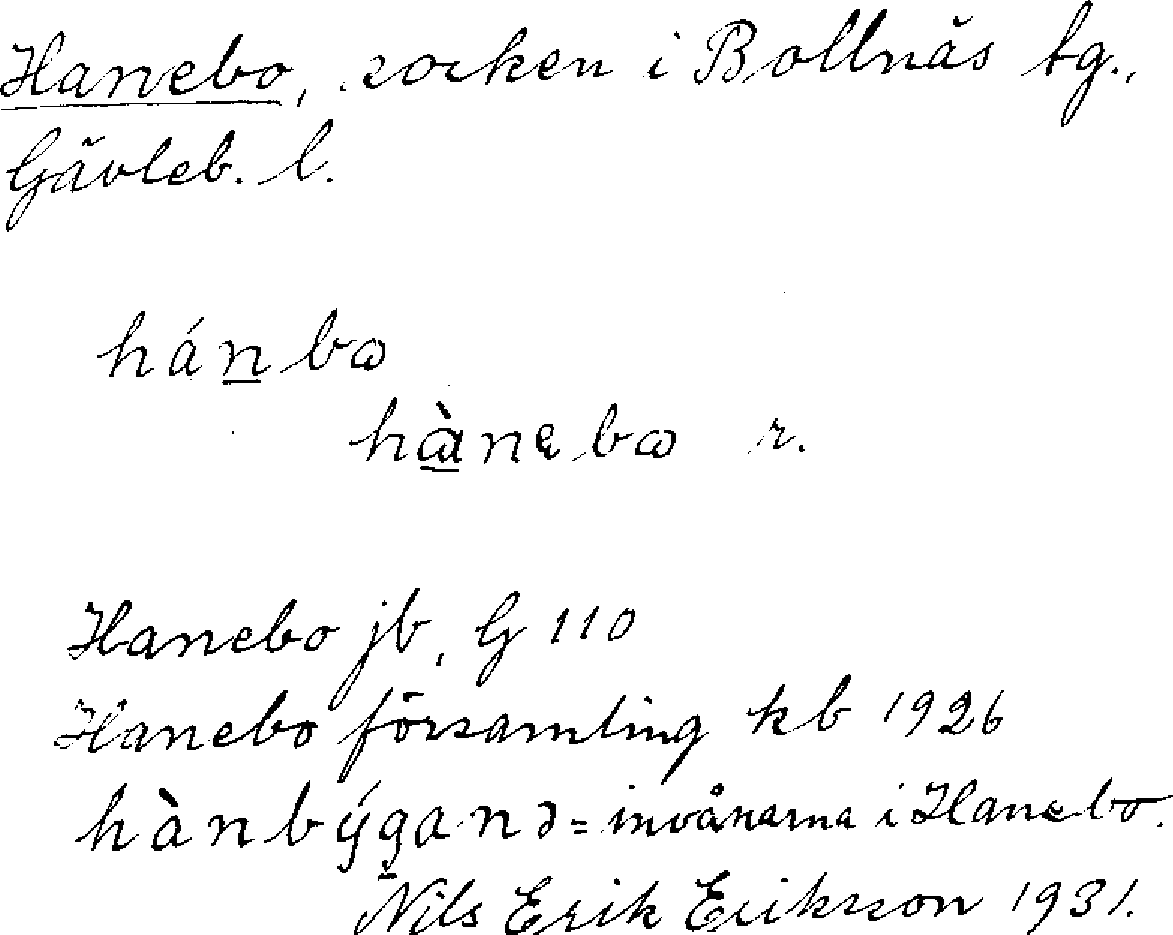 Hanebo, socken i Bollnäs tg.,
Gävleb. l.
hánbɷ
hànebɷ r.
Hanebo jb, G 110
Hanebo församling kb 1926
hànbýganə = invånarna i Hanebo.
Nils Erik Eriksson 1931.